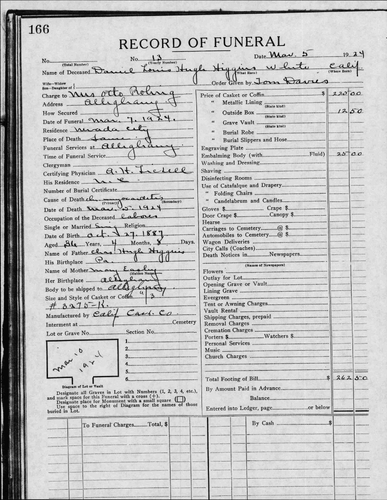 166
RECORD OF FUNERAL
No. 13 Date Mar. 5 1924
(Yearly Number)
Name of Deceased Daniel Louis Hugh Higgins White Calif
(What Race)
Wife—Widow—
Son—Daughter of Order Given by Tom Davies
Charge to Mrs Otto Rohrig
Address Alleghany
How Secured
Date of Funeral Mar. 7, 1924.
Residence Nevada City
Place of Death Same
Funeral Services at Alleghany
Time of Funeral Service
Clergyman
Certifying Physician
His Residence
Number of Burial Certificate
Cause of Death
Date of Death Mar. 5 - 1924
Occupation of the Deceased laborer
Single or Married Sin Religion
Date of Birth Oct. 27. 1887
Aged 36 Years, 4 Months, 8 Days.
Name of Father Hugh Higgins
His Birthplace
Name of Mother
Her Birthplace Alleghany
Body to be shipped to Alleghany
Size and Style of Casket or Coffin
Manufactured by Calif Cas. Co
Interment at Cemetery
Lot or Grave No. Section No.
Mar. 10
1924
Diagram of Lot or Vault
Designate all Graves in Lot with Numbers (1, 2, 3, 4, etc.),
and mark space for this Funeral with a cross (+)
Designate place for Monument with a small square
Use space to right of Diagram for the names of those
buried in Lot.
To Funeral Charges . . Total, $
Price of Casket or Coffin $ 225 00
" Metallic Lining
(State Kind)
" Outside Box 12 50
(State Kind)
" Grave Vault
(State Kind)
" Burial Robe
(State Kind)
" Burial Slippers and Hose
Engraving Plate
Embalming Body (with Fluid) 25 00
Washing and Dressing
Shaving
Disinfecting Rooms
Use of Catafalque and Drapery
" Folding Chairs
" Candelabrum and Candles
Gloves $ Crape $
Door Crape $ Canopy $
Hearse
Carriages to Cemetery @ $
Automobiles to Cemetery @ $
Wagon Deliveries
City Calls (Coaches)
Death Notices in Newspapers
(Names of Newspapers)
Flowers
Outlay for Lot
Opening Grave or Vault
Lining Grave
Evergreens
Tent or Awning Charges
Vault Rental
Shipping Charges, prepaid
Removal Charges
Cremation Charges
Porters $ Watchers $
Personal Services
Music
Church Charges
Total Footing of Bill $ 262 50
By Amount Paid in Advance
Balance
Entered into Ledger, page or below
By Cash $